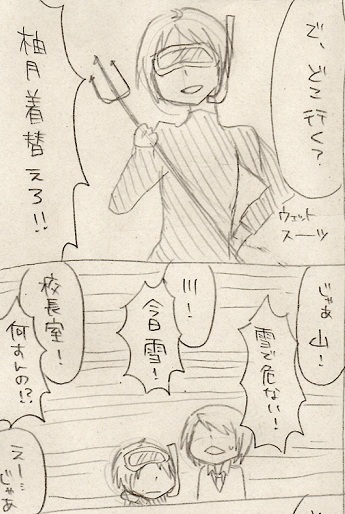 で、どこ行く?
ウェット
スーツ
柚月着替えろ!!
じゃあ山!
雪で危ない!
川!
今日雪!
校長室!
何すんの!?
えー…
じゃあ